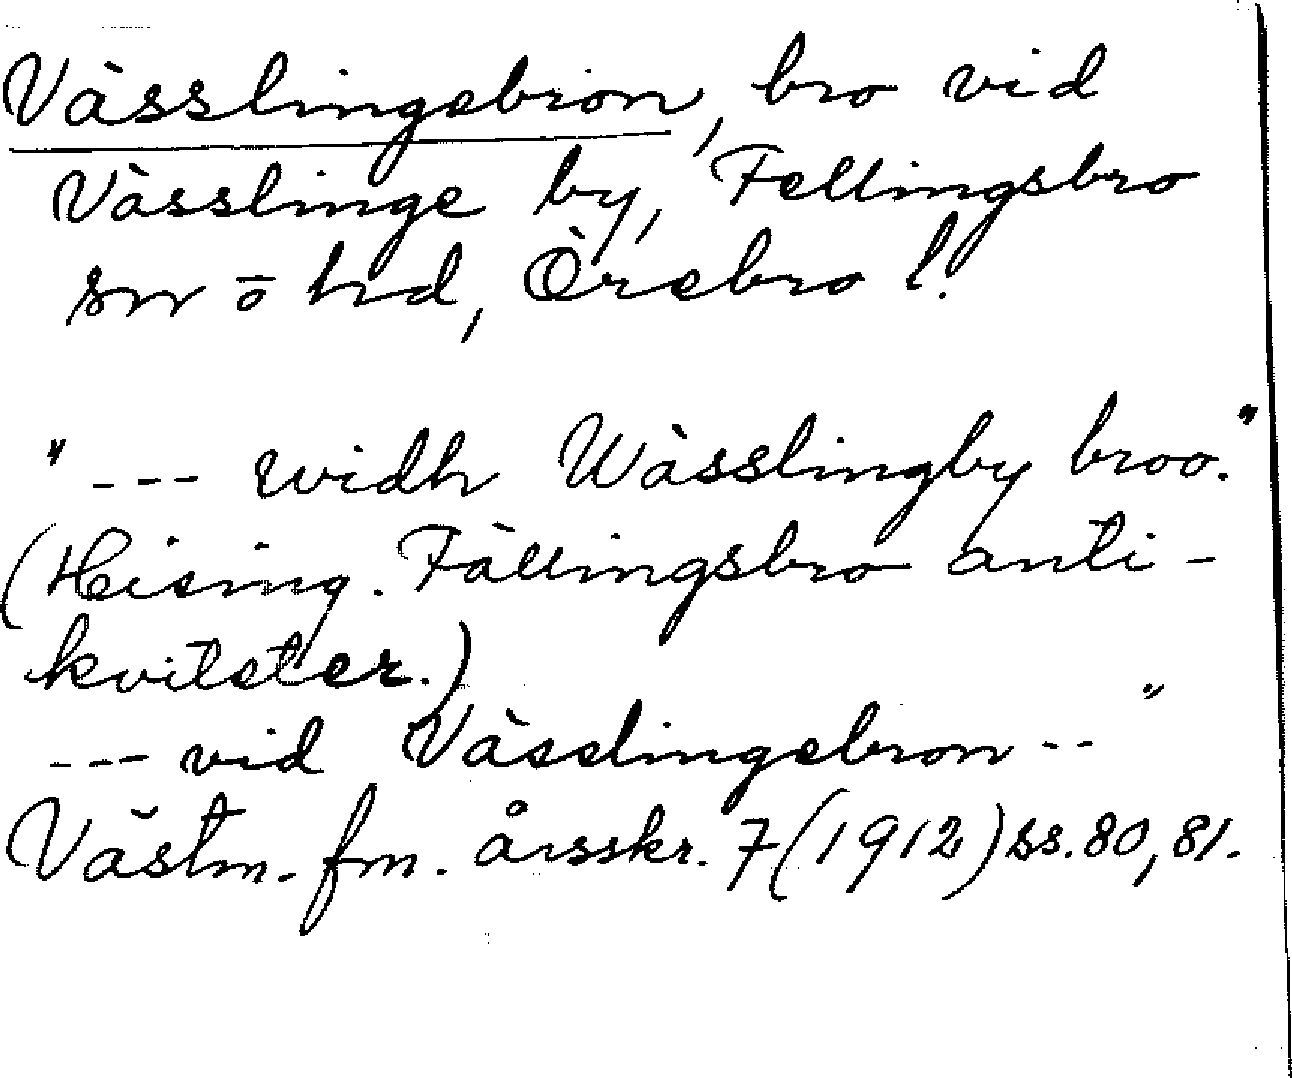 Vässlingebron, bro vid
Vässlinge by, Fellingsbro
sn o hd, Örebro l.
" --- widh Wässlingby broo."
(Hising. Fällingsbro anti-
kviteter.)
--- vid Vässlingebron -- "
Västm. fm. årsskr. 7 (1912) ss. 80, 81.